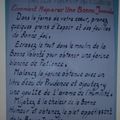 Comment Préparer Une Bonne Journée
Dans la ferme de votre cœur, prenez
quelques grains d'Espoir et une feuille
de Bonne foi.
Ecrasez le tout dans le moulin de la
Bonne Volonté pour obtenir une farine
blanche de Patience.
Malaxez la farine obtenue avec un
litre d'eau de Prudence et ajoutez-y
une goutte de l'arôme de l'Amitié.
Mijotez à la chaleur de la Bonne
Humeur et obtenez le plat appétissant